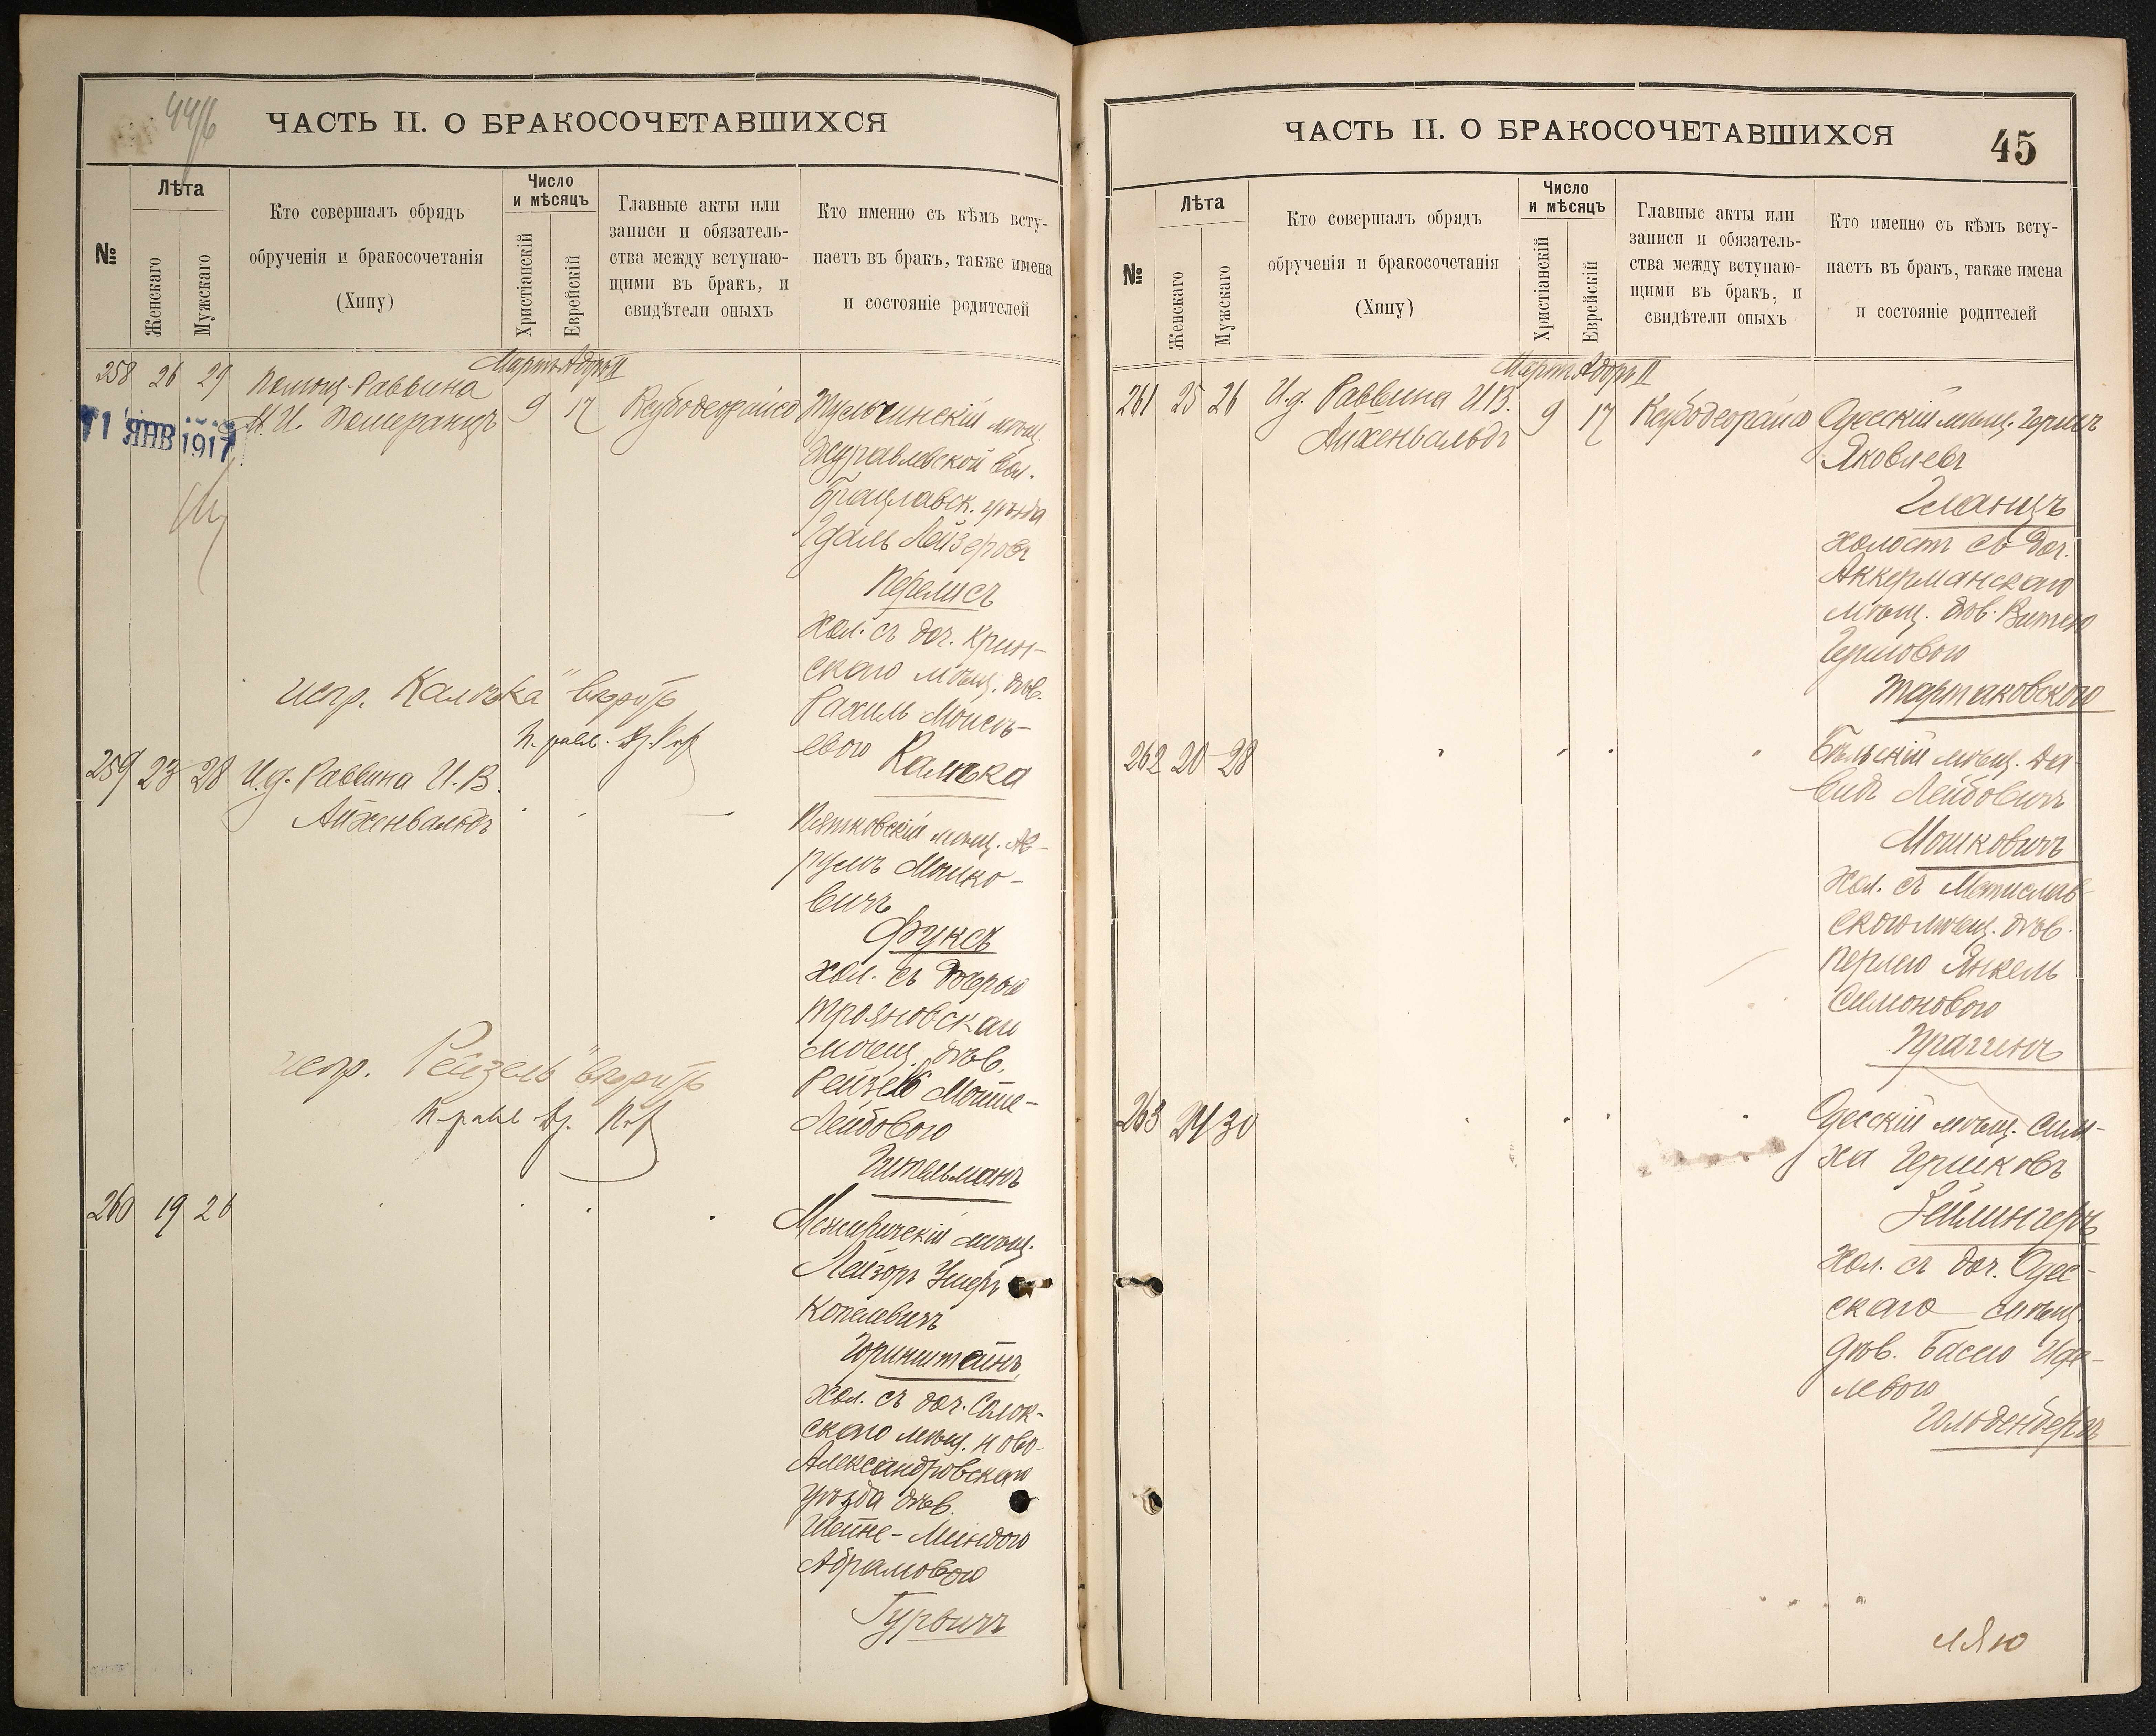 44/6
ЧАСТЬ II. О БРАКОСОЧЕТАВШИХСЯ
№
Лѣта
Женскаго
Мужскаго
Кто совершалъ обрядъ
обрученія и бракосочетанія
(Хипу)
Число
и мѣсяцъ
Христіанскій
Еврейскій
Главные акты или
записи и обязатель-
ства между вступаю-
щими въ бракъ, и
свидѣтели оныхъ
Кто именно съ кѣмъ всту-
паетъ въ бракъ, также имена
и состояніе родителей
Мартъ Адоръ II
258 26 29 Помощ. Раввина
И. Померанцъ 9 17
11 ЯНВ 1917
Тульчинскій мѣщ.
Журавлевской вол.
Брацлавск. уѣзда
Удаль Лейзеровъ
Перелисъ
хол. съ доч. Крин-
скаго мѣщ. дѣв.
Рахиль Моисе-
евою Калька
испр. Калька" вѣрить
259 23 28 И.д. Раввина И.В.
Айхенвальдъ
Пятковскій мѣщ. Ав-
румъ Мошко-
вичъ
Фуксъ
хол. съ дочерью
Трояновскаи
мѣщ. дѣв.
Рейзею Мойше-
Лейбовою
Гительманъ
испр. Рейзель" вѣрить
260 19 26
мѣщ.
Лейзоръ Ушеръ
Копелевичъ
Горинштейнъ
хол. съ доч. Солок-
скаго мѣщ. Ново-
Александровскаго
уѣзда дѣв.
Шейне-Миндою
Абрамовою
Гурвичъ
ЧАСТЬ II. О БРАКОСОЧЕТАВШИХСЯ
45
№
Лѣта
Женскаго
Мужскаго
Кто совершалъ обрядъ
обрученія и бракосочетанія
(Хипу)
Число
и мѣсяцъ
Христіанскій
Еврейскій
Главные акты или
записи и обязатель-
ства между вступаю-
щими въ бракъ, и
свидѣтели оныхъ
Кто именно съ кѣмъ всту-
паетъ въ бракъ, также имена
и состояніе родителей
Мартъ Адоръ II
261 25 26 И.д. Раввина И.В.
Айхенвальдъ 9 17
Одесскій мѣщ. Гершъ
Яковлевъ
Гланцъ
холостъ съ доч.
Аккерманскаго
мѣщ. дѣв. Витею
Гершовою
Тартаковского
262 20 28
Бѣльскій мѣщ. Да-
видъ Лейбовичъ
Мошковичъ
хол. съ Мстислав-
скою мѣщ. дѣв.
Перлею Янкель
Симоновою
263 24 30
Одесскій мѣщ. Сим-
ха Гершковъ
Зейлингеръ
хол. съ доч. Одес-
скаго мѣщ.
дѣв. Басею Иде-
левою
Гольденбергъ